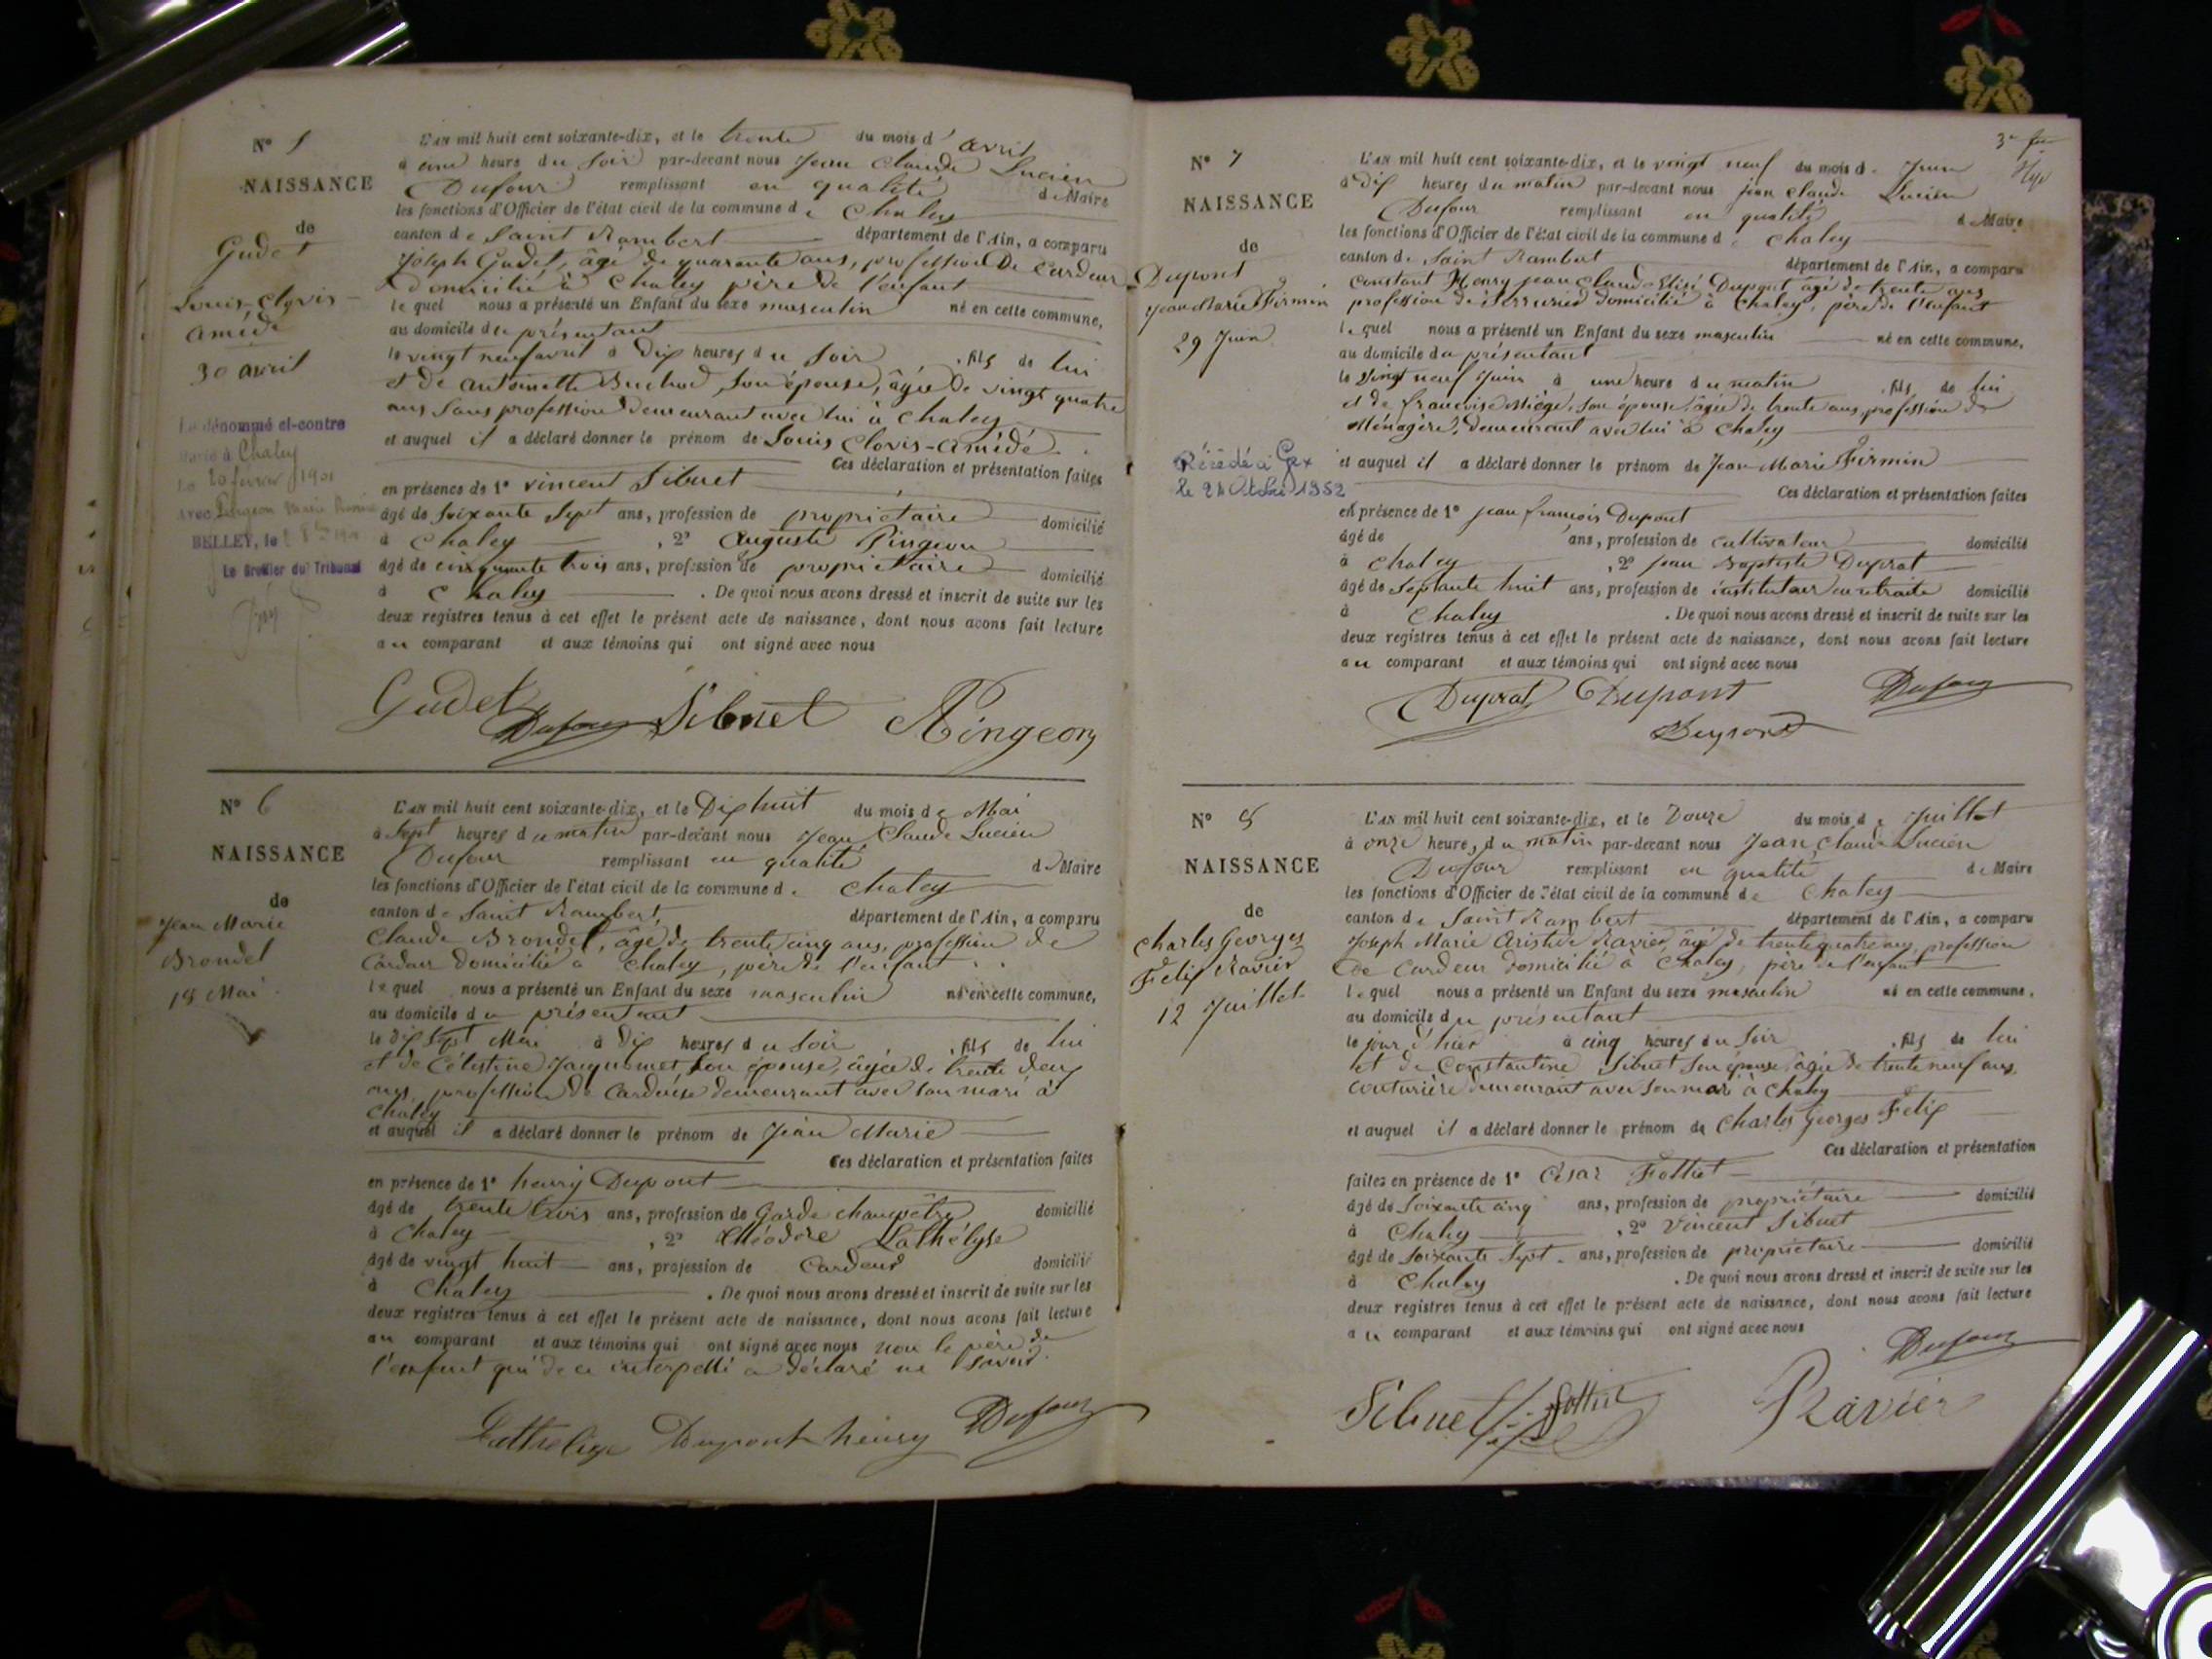 N° 5
NAISSANCE
de
Gudet
Louis-Clovis-
Amédé
30 avril
Le dénommé ci-contre
marié à Chaley
Le 20 février 1901
avec Pingeon Marie
BELLEY, le
Le Greffier du Tribunal
L'AN mil huit cent soixante-dix, et le trente du mois d' avril
à une heure du soir par-devant nous Jean Claude Lucien
Dufour remplissant en qualité de Maire
les fonctions d'Officier de l'état civil de la commune de Chaley
canton de Saint Rambert département de l'Ain, a comparu
Joseph Gudet, âgé de quarante ans, profession De Cardeur
domicilié à Chaley père de l'enfant
le quel nous a présenté un Enfant du sexe masculin né en cette commune,
au domicile du présentant
le vingt neuf avril à dix heures du soir , fils de lui
et de antoinette Buchod, son épouse, âgée de vingt quatre
ans sans profession demeurant avec lui à Chaley
et auquel il a déclaré donner le prénom de Louis Clovis-Amédé
Ces déclaration et présentation faites
en présence de 1° vincent Sibuet
âgé de soixante sept ans, profession de propriétaire domicilié
à Chaley , 2° Auguste Pingeon
âgé de cinquante trois ans, profession de propriétaire domicilié
à Chaley . De quoi nous avons dressé et inscrit de suite sur les
deux registres tenus à cet effet le présent acte de naissance, dont nous avons fait lecture
au comparant et aux témoins qui ont signé avec nous
Gudet Dufour Sibuet Pingeon
N° 6
NAISSANCE
de
Jean Marie
Brondel
18 Mai
L'AN mil huit cent soixante-dix, et le Dix huit du mois de Mai
à sept heures du matin par-devant nous Jean Claude Lucien
Dufour remplissant en qualité de Maire
les fonctions d'Officier de l'état civil de la commune de Chaley
canton de Saint Rambert, département de l'Ain, a comparu
Claude Brondel, âgé de trente cinq ans, profession de
Cardeur domicilié à Chaley, père de l'enfant
le quel nous a présenté un Enfant du sexe masculin né en cette commune,
au domicile du présentant
le dix sept Mai à dix heures du soir , fils de lui
et de Célestine Jacquemet, son épouse, âgée de trente deux
ans, profession de Cardeuse demeurant avec son mari à
Chaley
et auquel il a déclaré donner le prénom de Jean Marie
Ces déclaration et présentation faites
en présence de 1° henry Dupont
âgé de trente trois ans, profession de Garde champêtre domicilié
à Chaley , 2° théodore Lathélize
âgé de vingt huit ans, profession de Cardeur domicilié
à Chaley . De quoi nous avons dressé et inscrit de suite sur les
deux registres tenus à cet effet le présent acte de naissance, dont nous avons fait lecture
au comparant et aux témoins qui ont signé avec nous non le père de
l'enfant qui de ce interpellé a déclaré ne savoir
Lathelize Dupont henry Dufour
3e
N° 7
NAISSANCE
de
Dupont
Jean Marie Firmin
29 Juin
Décédé à Gex
le 24 Octobre 1952
L'AN mil huit cent soixante-dix, et le vingt neuf du mois de Juin
à dix heures du matin par-devant nous jean claude Lucien
Dufour remplissant en qualité de Maire
les fonctions d'Officier de l'état civil de la commune de Chaley
canton de Saint Rambert département de l'Ain, a comparu
Constant Henry jean claude Elisé Dupont âgé de trente ans
profession de serrurier domicilié à Chaley, père de l'enfant
le quel nous a présenté un Enfant du sexe masculin né en cette commune,
au domicile du présentant
le vingt neuf Juin à une heure du matin , fils de lui
et de françoise Miège, son épouse, âgée de trente ans, profession de
Ménagère, demeurant avec lui à Chaley
et auquel il a déclaré donner le prénom de Jean Marie Firmin
Ces déclaration et présentation faites
en présence de 1° jean françois Dupont
âgé de ans, profession de cultivateur domicilié
à Chaley , 2° jean Baptiste Duprat
âgé de septante huit ans, profession de instituteur en retraite domicilié
à Chaley . De quoi nous avons dressé et inscrit de suite sur les
deux registres tenus à cet effet le présent acte de naissance, dont nous avons fait lecture
au comparant et aux témoins qui ont signé avec nous
Duprat Dupont Dufour
N° 8
NAISSANCE
de
Charles Georges
Félix Ravier
12 Juillet
L'AN mil huit cent soixante-dix, et le Douze du mois de Juillet
à onze heures du matin par-devant nous Jean Claude Lucien
Dufour remplissant en qualité de Maire
les fonctions d'Officier de l'état civil de la commune de Chaley
canton de Saint Rambert département de l'Ain, a comparu
Joseph Marie Aristide Ravier, âgé de trente quatre ans, profession
de Cardeur domicilié à Chaley, père de l'enfant
le quel nous a présenté un Enfant du sexe masculin né en cette commune,
au domicile du présentant
le jour d'hier à cinq heures du soir , fils de lui
et de Constantine Sibuet son épouse, âgée de trente neuf ans,
couturière demeurant avec son mari à Chaley
et auquel il a déclaré donner le prénom de Charles Georges Félix
Ces déclaration et présentation
faites en présence de 1° César Folliet
âgé de soixante cinq ans, profession de propriétaire domicilié
à Chaley , 2° Vincent Sibuet
âgé de soixante sept ans, profession de propriétaire domicilié
à Chaley . De quoi nous avons dressé et inscrit de suite sur les
deux registres tenus à cet effet le présent acte de naissance, dont nous avons fait lecture
au comparant et aux témoins qui ont signé avec nous
Dufour
Sibuet Folliet Ravier